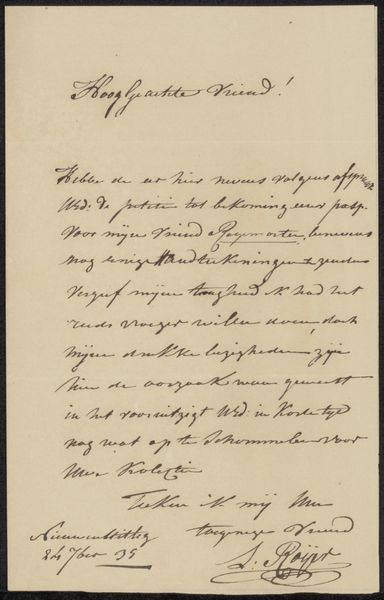 Hoog Geachte Vriend!
Hebbe de eer hier nevens volgens afspraak
UEd: de petitie tot bekoming eener pasp.
voor mijne Vriend Raymorter, benevens
nog eenige Handteekeningen te zenden
Vergeef mijne traagheid ik had het
reeds vroeger willen doen, doch
mijne drukke bezigheden zijn
hier de oorzaak van geweest
in het vooruitzigt UEd: in Korte tyd
nog wat op te Schommelen voor
Uwe Kolectie
Teeken ik mij Uw
toegenege Vriend
Nieuwediep
24 7ber 39
L. Roijer